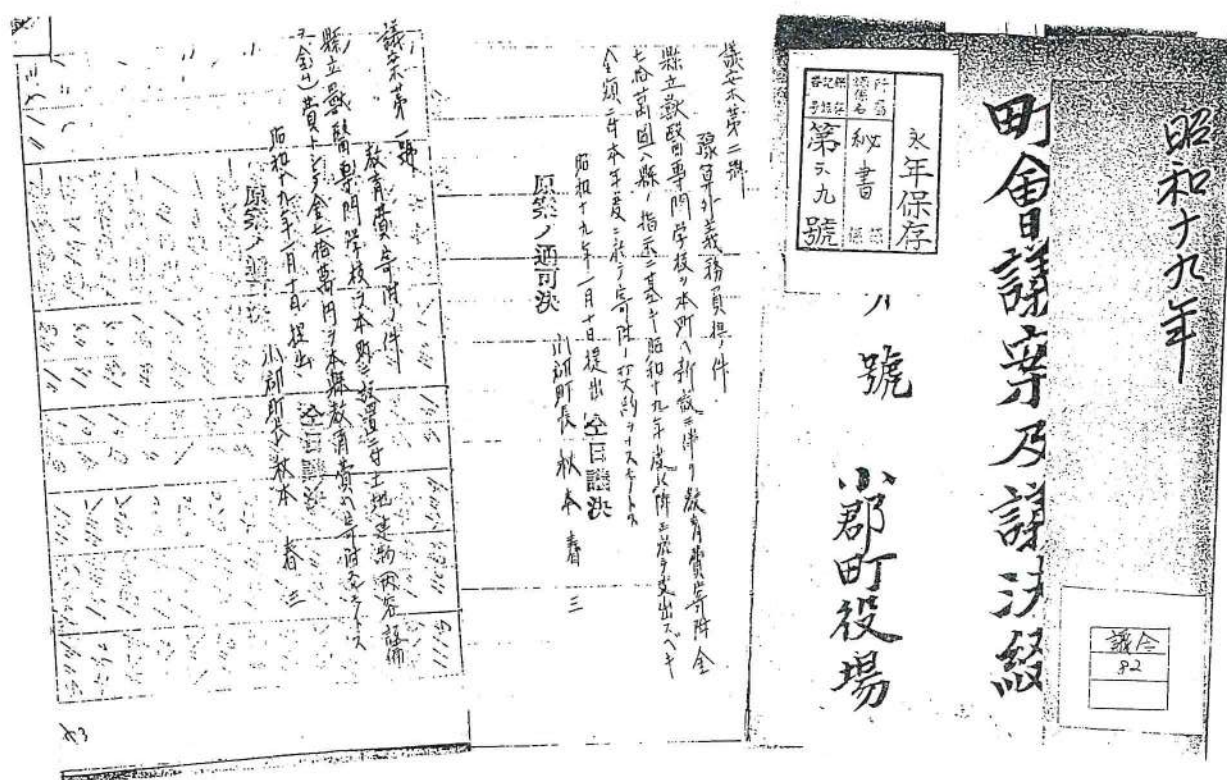 昭和十九年
議会
82
町會議案及議決綴
永年保存
秘書
第六九號
號
小郡町役場
議案第二號
豫算外義務負担ノ件
縣立獸医専門学校ヲ本町ヘ新設ニ伴フ教育費寄附金
七拾萬圓ハ縣ノ指示ニ基キ昭和十九年度以降ニ於テ支出スベキ
金額ニ付本年度ニ於テ寄附ノ契約ヲナスモノトス
昭和十九年一月十日提出 全日議決
小郡町長 秋本春三
原案ノ通可決
議案第一號
教育費寄附ノ件
縣立獸醫専門学校ヲ本町ニ設置ニ付土地建物内容設備
費トシテ金七拾萬円ヲ本縣教育費ヘ寄附
昭和十九年一月十日提出 全日議決
小郡町長 秋本春三
原案ノ通可決